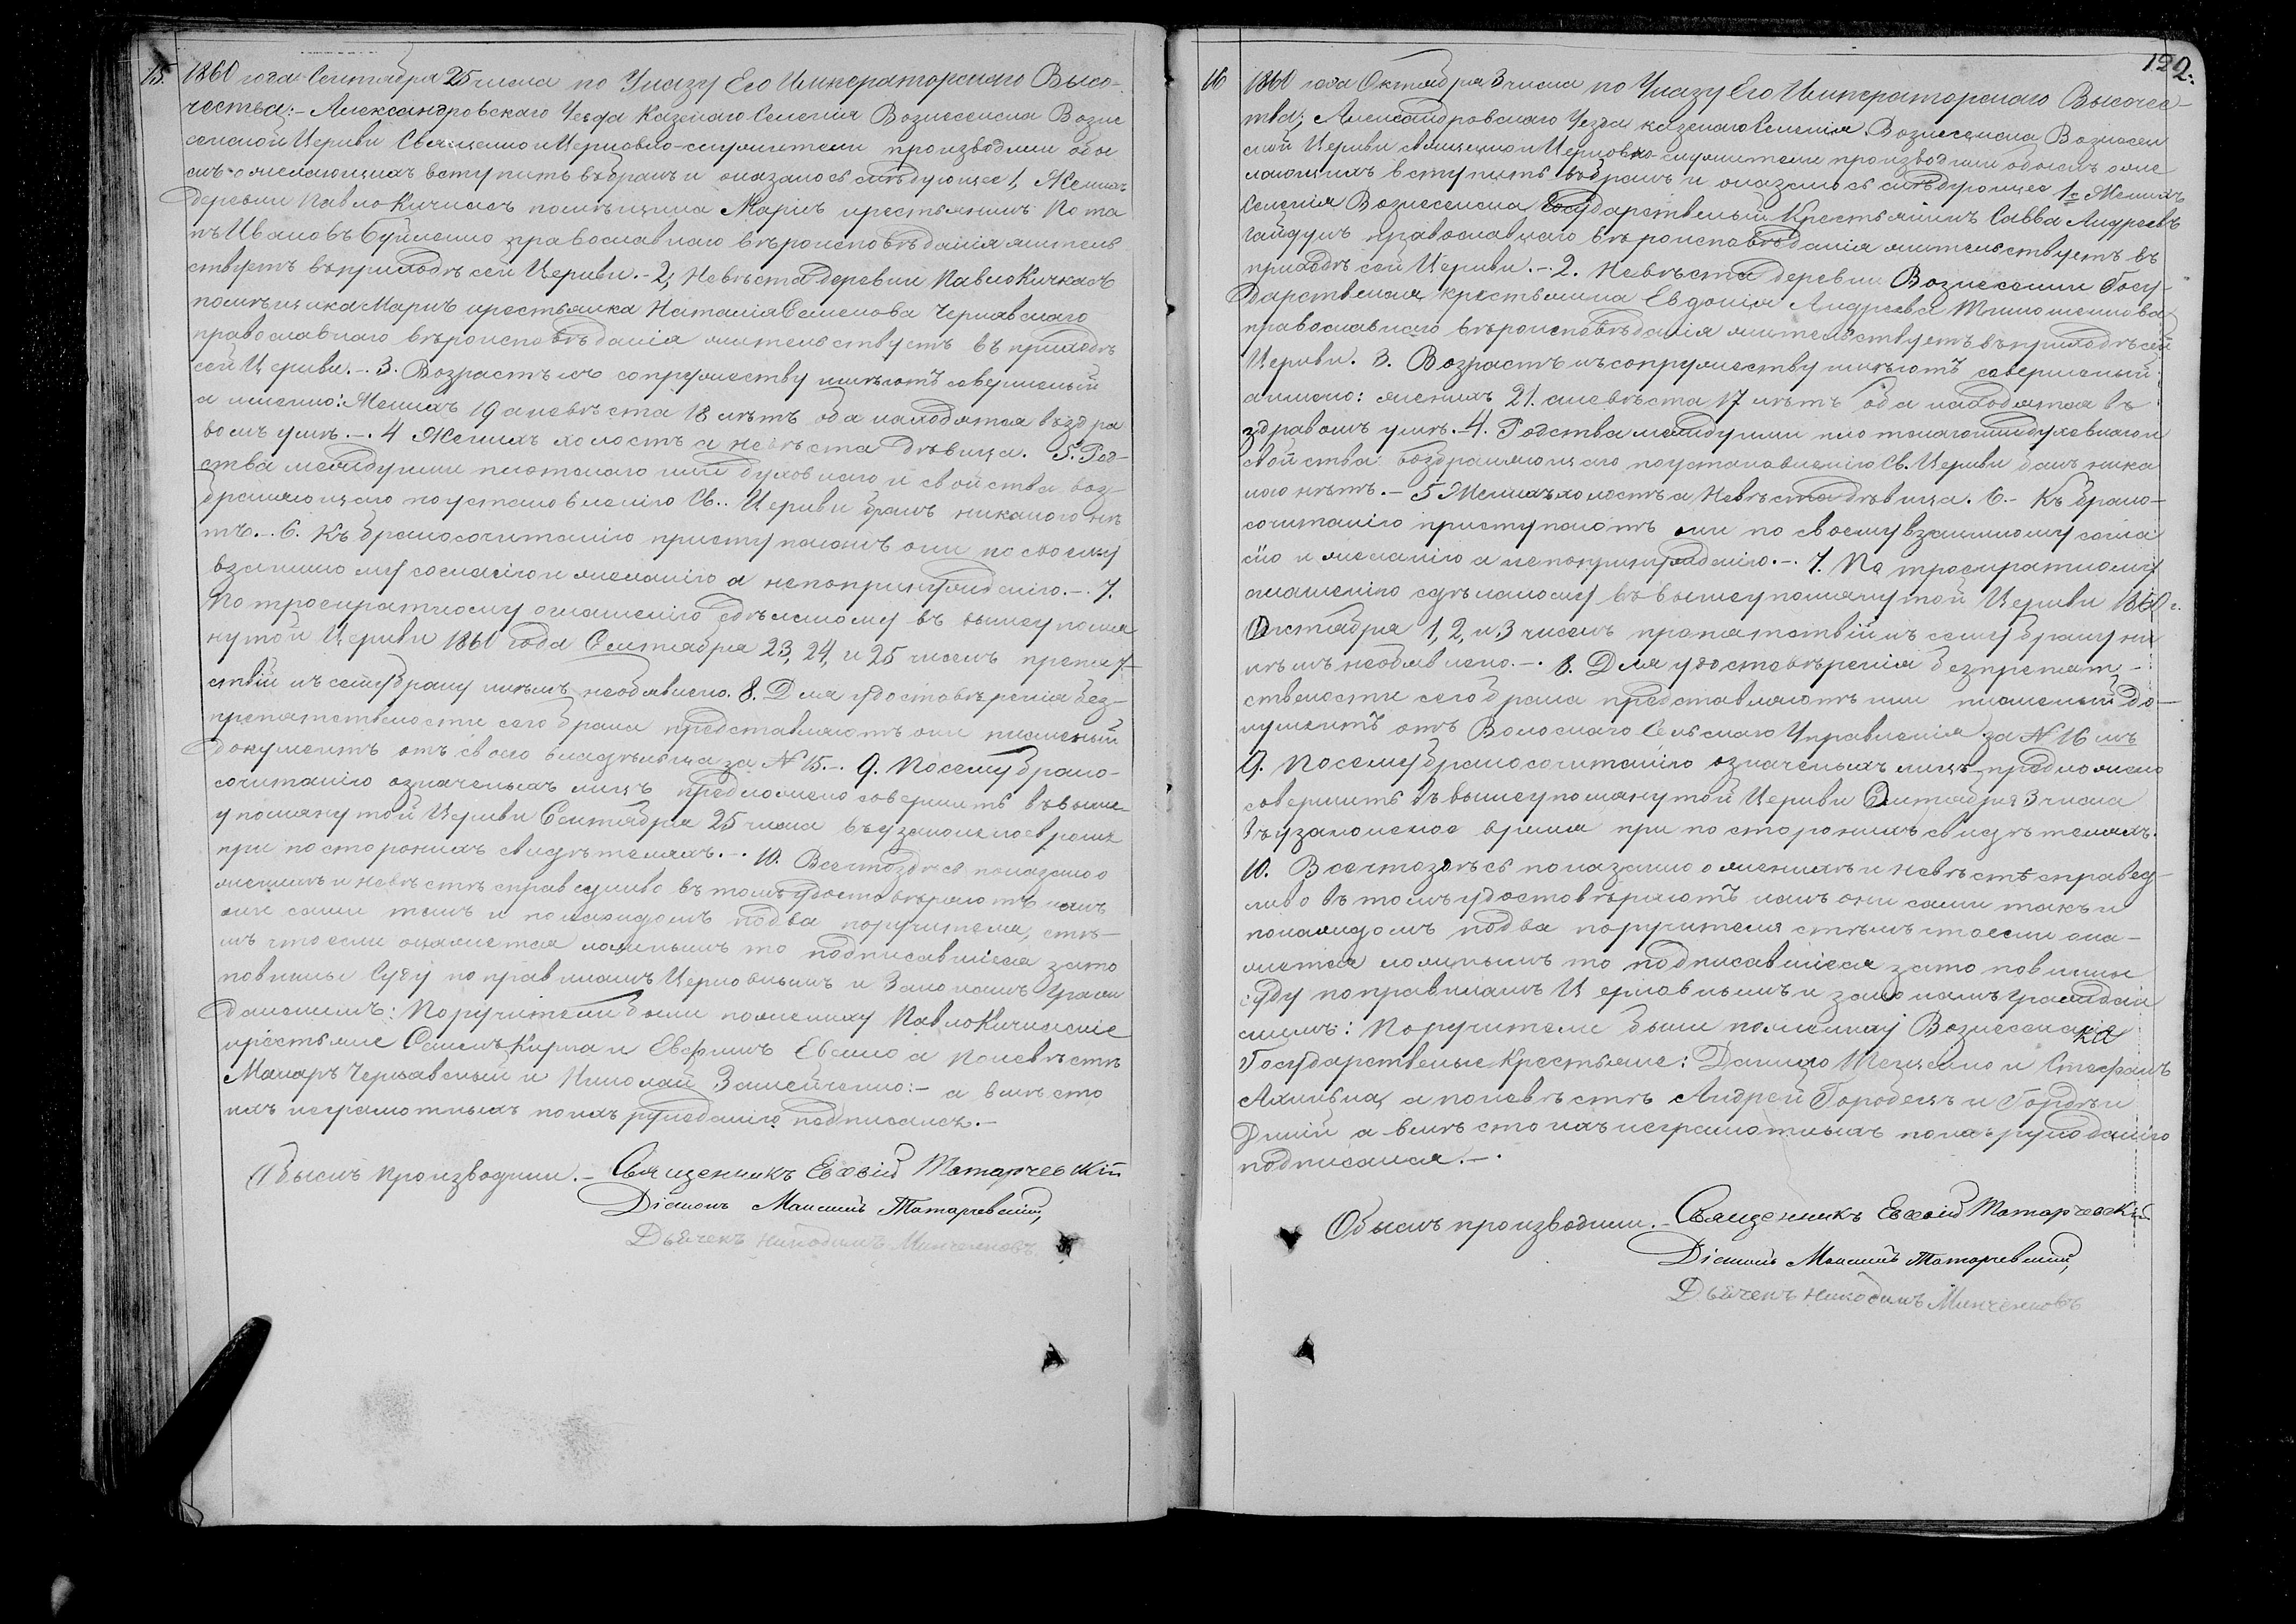 15. 1860 года Сентября 25 числа по Указу Его Императорскаго Высо-
чества:- Александровскаго Уезда Казенаго Селенія Вознесенска Возне
сенской Церкви Священно и Церковно-служители производили обы
скъ о желающихъ вступить въ бракъ и оказалось следующее 1, Женихъ
деревни Павло Кичкасъ помѣщика Маркъ крестьянинъ Пота
пъ Ивановъ Буйленко православнаго вѣроисповѣданія житель
ствуетъ въ приходѣ сей Церкви.-2, Невѣста деревни Павло Кичкасъ
помѣщика Маркъ крестьянка Наталія Семенова Чернявскаго
православнаго вѣроисповѣданія жительствуетъ въ приходѣ
сей Церкви.-. 3. Возрастъ къ сопружеству имѣютъ совершеный
а имено: Женихъ 19 а невѣста 18 лѣтъ оба находятся въ здра
вомъ умѣ.-. 4 Женихъ холостъ а невѣста дѣвица. 5. Род-
ства между ими плотскаго или духовнаго и свойства воз-
браняющаго по установленію Св.. Церкви бракъ никакого нѣ
тъ.-. 6. Къ бракосочитанію приступаютъ они по своему
взаимному согласію и желанію а непопринужденію.-. 7.
По троекратному оглашенію сдѣланому въ вышеупомя
нутой Церкви 1860 года Сентября 23, 24, и 25 числъ препят
ствій къ сему браку никѣмъ необявлено. 8. Для удостовѣренія без-
препятствености сего брака представляютъ они писменый
документъ отъ своего владѣльца за N 15.-. 9. Посему брако-
сочитанію означеныхъ лицъ предложено совершить въ выше
упомянутой Церкви Сентября 25 числа въ узаконеное время
при постороннихъ свидѣтеляхъ.-. 10. Все что здѣсь показано о
женихѣ и невѣстѣ справедливо въ томъ удостовѣряютъ какъ
они сами такъ и по каждомъ по два поручителя, стѣ-
мъ что если окажется ложнымъ то подписавшіеся за то
повинны Суду по правиламъ Церковнымъ и Законамъ Граж
данскимъ: Поручители были по жениху Павло Кичкаскіе
крестьяне Семенъ Кирпа и Евфимъ Евенко а по невѣстѣ
Макаръ Чернявскый и Николай Замейченко:- а вмѣсто
ихъ неграмотныхъ по ихъ рукоданію подписался.-
Обыскъ производили.- Священникъ Евфвій Татарчевскій
Діаконъ Максимъ Татарчевскій,
Дьячекъ Никодимъ Минченковъ
122.
16 1860 года Октября 3 числа по Указу Его Императорскаго Высочес-
тва; Александровскаго Уезда казенаго Селенія Вознесенска Вознесен
ской Церкви священно и Церковно-служители производили обыскъ о же
лающихъ вступить въ бракъ и оказалось слѣдующее 1е Женихъ
Селенія Вознесенска Государственый Крестьянинъ Савва Андреевъ
Гайдукъ православнаго вѣроисповѣданія жительствуетъ въ
приходѣ сей Церкви.-. 2. Невѣста деревни Вознесенки Госу-
дарственая крестьянка Евдокія Андреева
православнаго вѣроисповѣданія жительствуетъ въ приходѣ сей
Церкви. 3. Возрастъ къ сопружеству имѣютъ совершеный
а имено: женихъ 21. а невѣста 17 лѣтъ оба находятся въ
здравомъ умѣ.-4. Родства между ими плотскаго или духовнаго и
свойства возбраняющаго по установленію Св. Церкви бакъ ника
кого нѣтъ.- 5 Женихъ холостъ а Невѣста дѣвица. 6.- Къ брако-
сочитанію приступаютъ они по своему взаимному согла
сію и желанію а непопринужденію.-. 7. По троекратному
оглашенію сдѣланому въ вышеупомянутой Церкви 1860 г.
Октября 1, 2, и 3 числъ препятствій къ сему браку ни
кѣмъ необявлено.-. 8. Для удостовѣренія безпрепят-
ствености сего брака представляютъ они писменый до-
кументъ отъ Волоскаго Сельскаго Управленія за N 16 мъ
9. Посему бракосочитанію означеныхъ лицъ предложено
совершить въ вышеупомянутой Церкви Октября 3 числа
въ узаконеное время при постороннихъ свидѣтеляхъ.
10. Все что здѣсь показано о женихѣ и невѣстѣ справед-
ливо въ томъ удостовѣряютъ какъ они сами такъ и
по каждомъ по два поручителя стѣмъ что если ока-
жется ложнымъ то подписавшіеся за то повинны
суду по правиламъ Церковнымъ и законамъ граждан
скимъ: Поручители были по жениху Вознесенскіе
Государственые Крестьяне: Данило и Стефанъ
а по невѣстѣ Андрей Городецъ и Гордѣи
Дикій а вмѣсто ихъ неграмотныхъ по ихъ рукоданію
подписался.-.
Обыскъ производили.- Священникъ Евфвій Татарчевскій
Діаконъ Максимъ Татарчевскій,
Дьячекъ Никодимъ Минченковъ